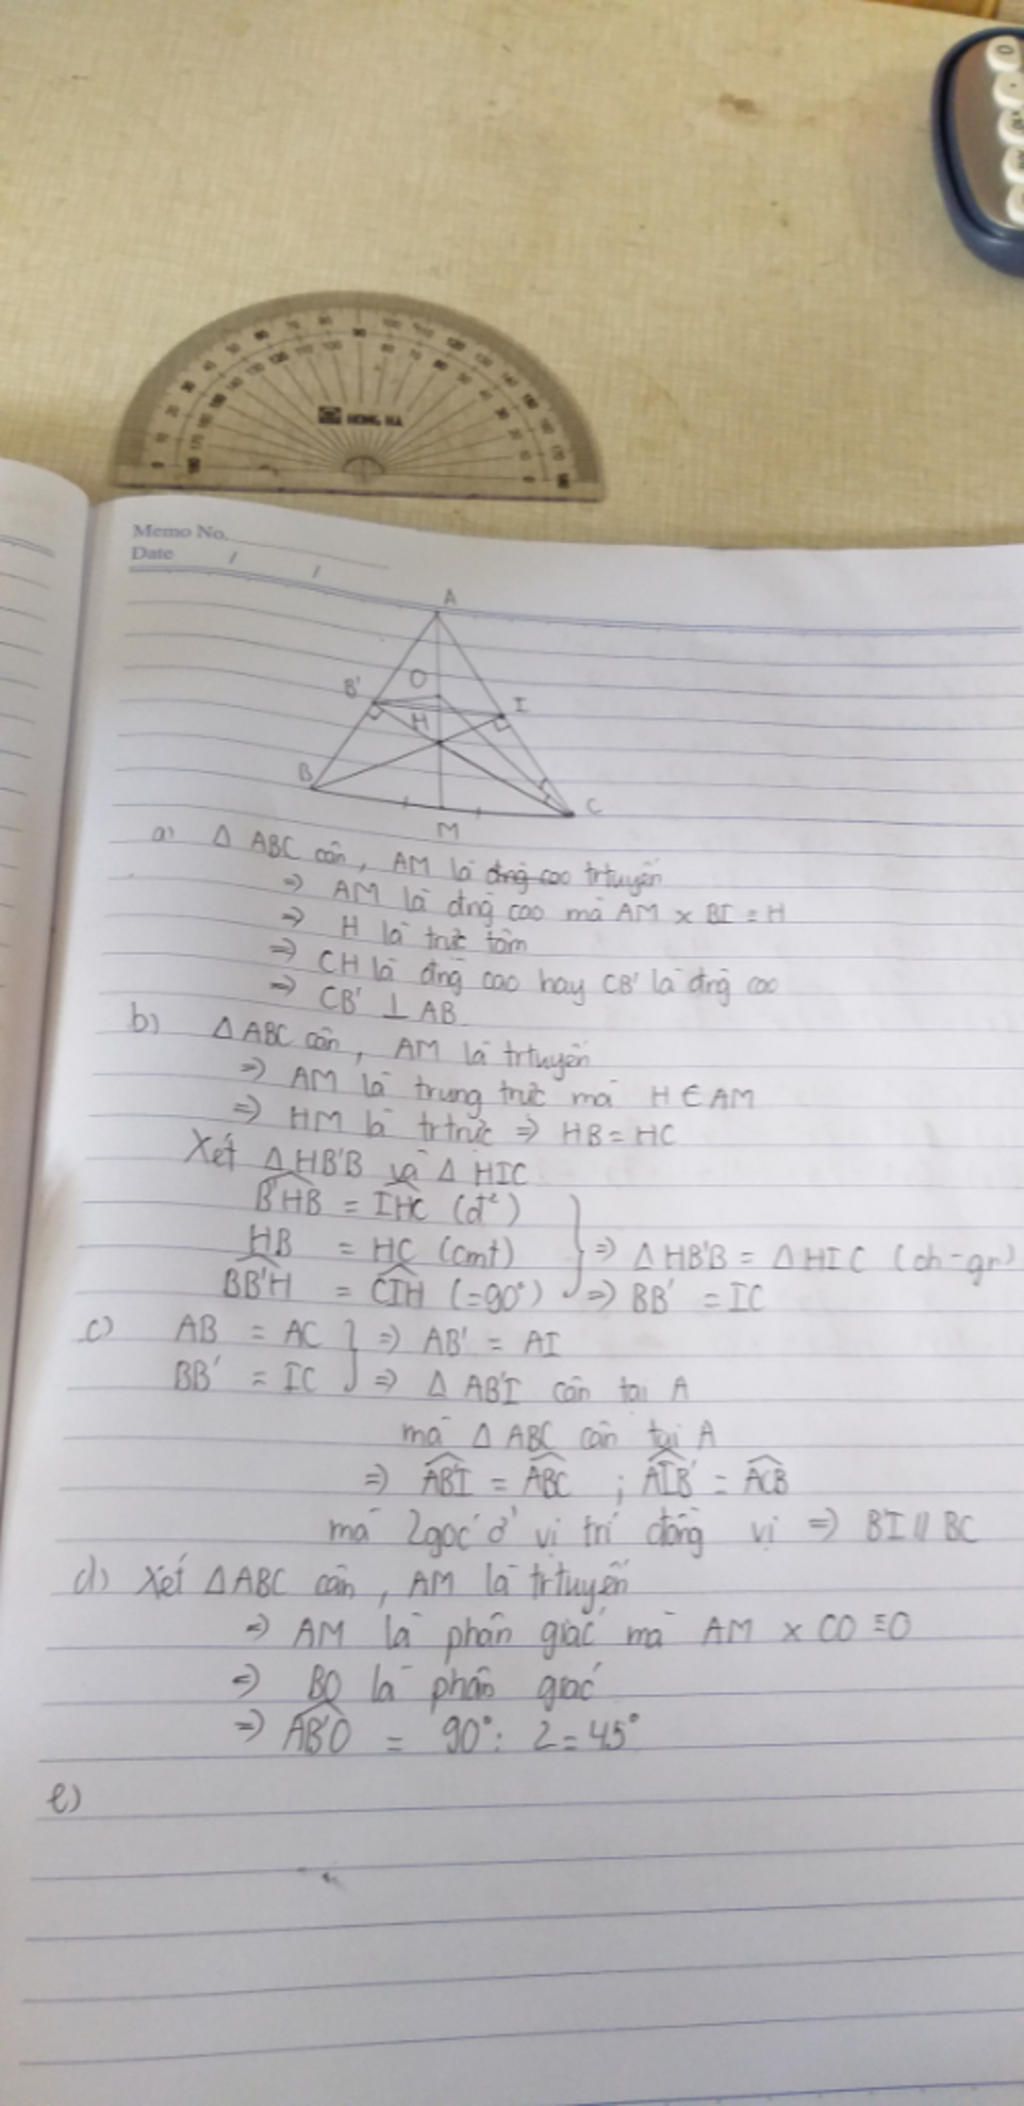 HONG HA
Memo No.
Date / /
A
B' O I
H
B C
M
a) Δ ABC cân, AM là đng cao trtuyến
=> AM là đng cao mà AM x BI ≡ H
=> H là trực tâm
=> CH là đng cao hay CB' là đng cao
=> CB' ⊥ AB
b) Δ ABC cân, AM là trtuyến
=> AM là trung trực mà H ∈ AM
=> HM là trtrực => HB = HC
Xét Δ HB'B và Δ HIC
B'HB = IHC (đ²)
HB = HC (cmt) => Δ HB'B = Δ HIC (ch-gn)
BB'H = CIH (=90°) => BB' = IC
c) AB = AC } => AB' = AI
BB' = IC => Δ AB'I cân tại A
mà Δ ABC cân tại A
=> AB'I = ABC ; AIB' = ACB
mà 2 góc ở vị trí đồng vị => B'I // BC
d) Xét Δ ABC cân, AM là trtuyến
=> AM là phân giác mà AM x CO ≡ O
=> BO là phân giác
=> AB'O = 90° : 2 = 45°
e)